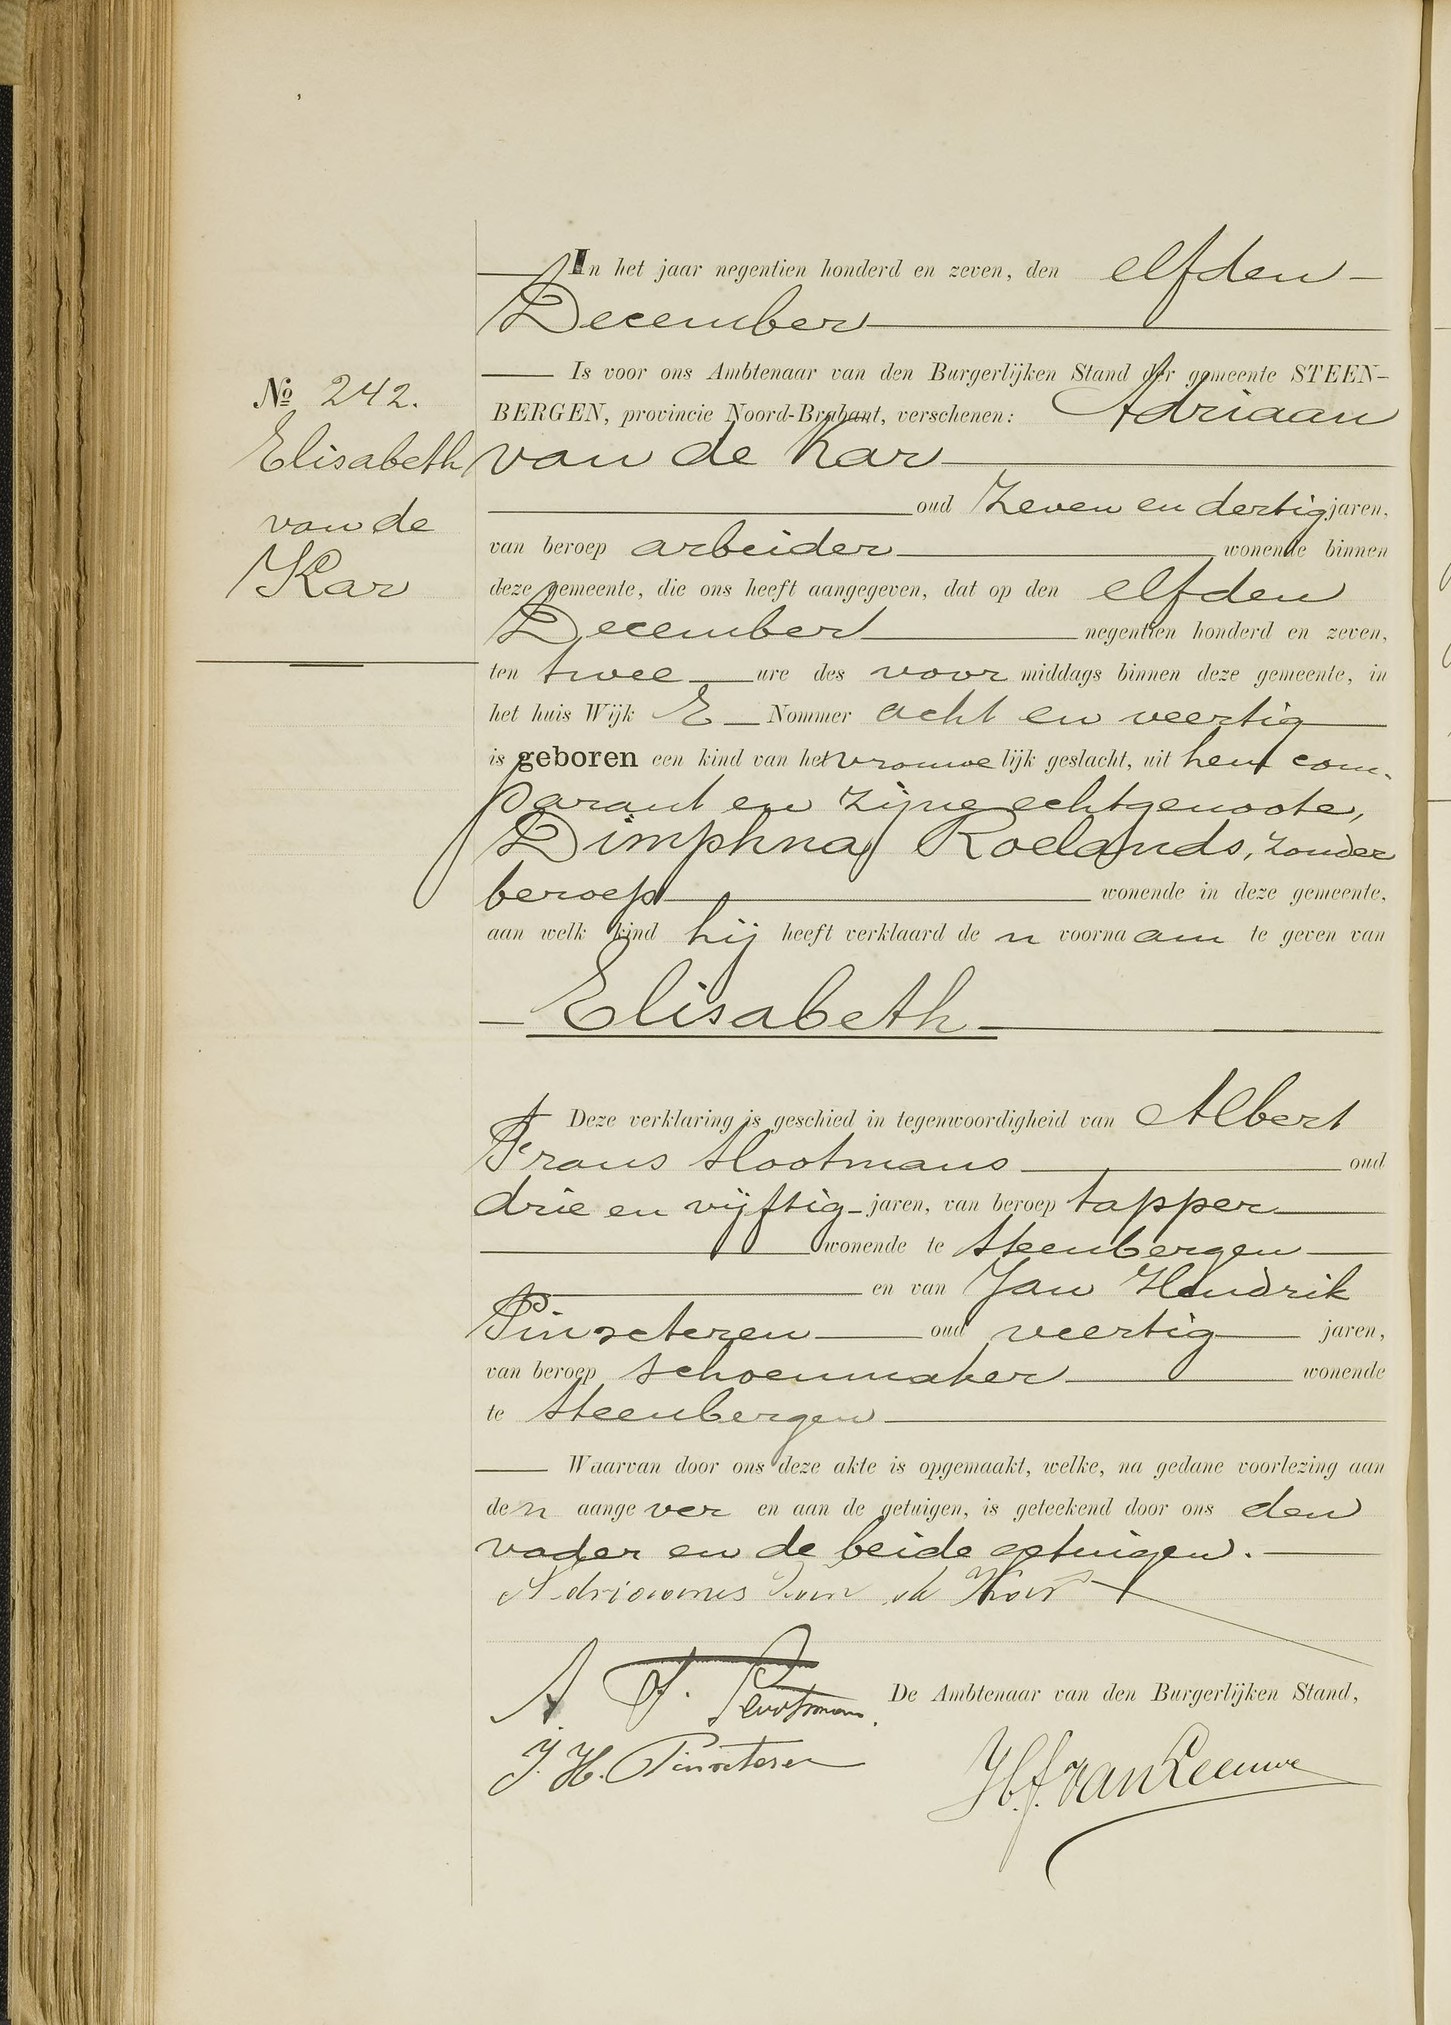 In het jaar negentien honderd en zeven, den elfden
December
Is voor ons Ambtenaar van den Burgerlijken Stand der gemeente STEEN-
No 242.
BERGEN, provincie Noord-Brabant, verschenen: Adriaan
Elisabeth
van de Kar
van de
oud zeven en dertig jaren,
Kar
van beroep arbeider wonende binnen
deze gemeente, die ons heeft aangegeven, dat op den elfden
December negentien honderd en zeven,
ten twee ure des voor middags binnen deze gemeente, in
het huis Wijk E Nommer acht en veertig
is geboren een kind van het vrouwe lijk geslacht, uit hem com-
parant en zijne echtgenoote,
Dimphna Roelands, zonder
beroep wonende in deze gemeente,
aan welk kind hij heeft verklaard de n voorna am te geven van
Elisabeth
Deze verklaring is geschied in tegenwoordigheid van Albert
Frans Slootmans oud
drie en vijftig jaren, van beroep tapper
wonende te Steenbergen
en van Jan Hendrik
Pinxteren oud veertig jaren,
van beroep schoenmaker wonende
te Steenbergen
Waarvan door ons deze akte is opgemaakt, welke, na gedane voorlezing aan
de n aange ver en aan de getuigen, is geteekend door ons den
vader en de beide getuigen.
Adrianus van de Kar
A. F. Slootmans.
De Ambtenaar van den Burgerlijken Stand,
J. H. Pinxteren
H.J. van Leeuwe